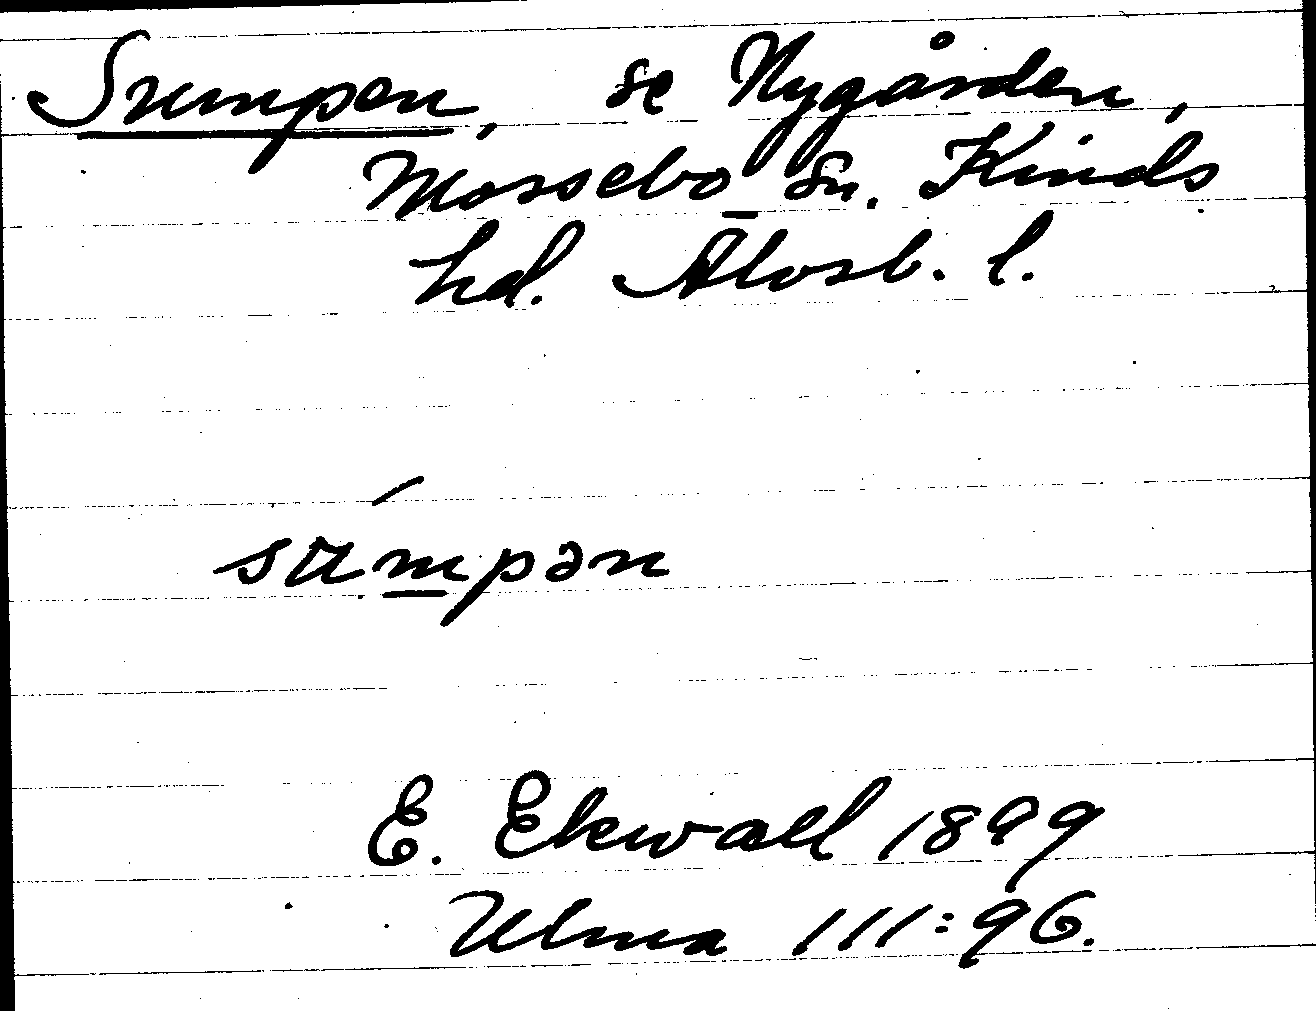 Sumpen, se Nygården,
Mossebo sn. Kinds
hd. Älvsb. l.
sumpən
E. Ekwall 1899
Ulma 111:96.